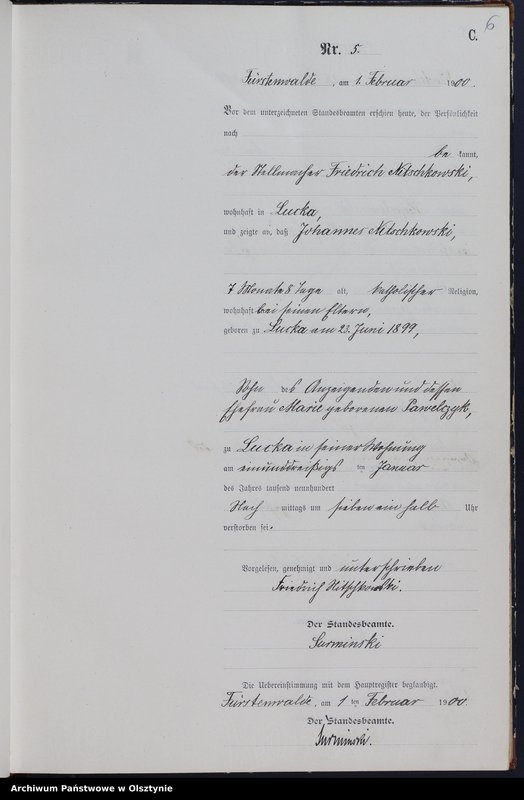 6
C.
Nr. 5.
Fürstenwalde, am 1. Februar 1900.
Vor dem unterzeichneten Standesbeamten erschien heute, der Persönlichkeit
nach
be kannt,
der Stellmacher Friedrich Nitschkowski,
wohnhaft in Lucka,
und zeigte an, daß Johannes Nitschkowski,
7 Monate 8 Tage alt, katholischer Religion,
wohnhaft bei seinen Eltern,
geboren zu Lucka am 23. Juni 1899,
Sohn des Anzeigenden und dessen
Ehefrau Marie geborenen Pawelczyk,
zu Lucka in seiner Wohnung
am einunddreißigs ten Januar
des Jahres tausend neunhundert
Nach mittags um sieben ein halb Uhr
verstorben sei.
Vorgelesen, genehmigt und unterschrieben
Friedrich Nitschkowski.
Der Standesbeamte.
Surminski
Die Uebereinstimmung mit dem Hauptregister beglaubigt.
Fürstenwalde, am 1 ten Februar 1900.
Der Standesbeamte.
Surminski.
Archiwum Państwowe w Olsztynie